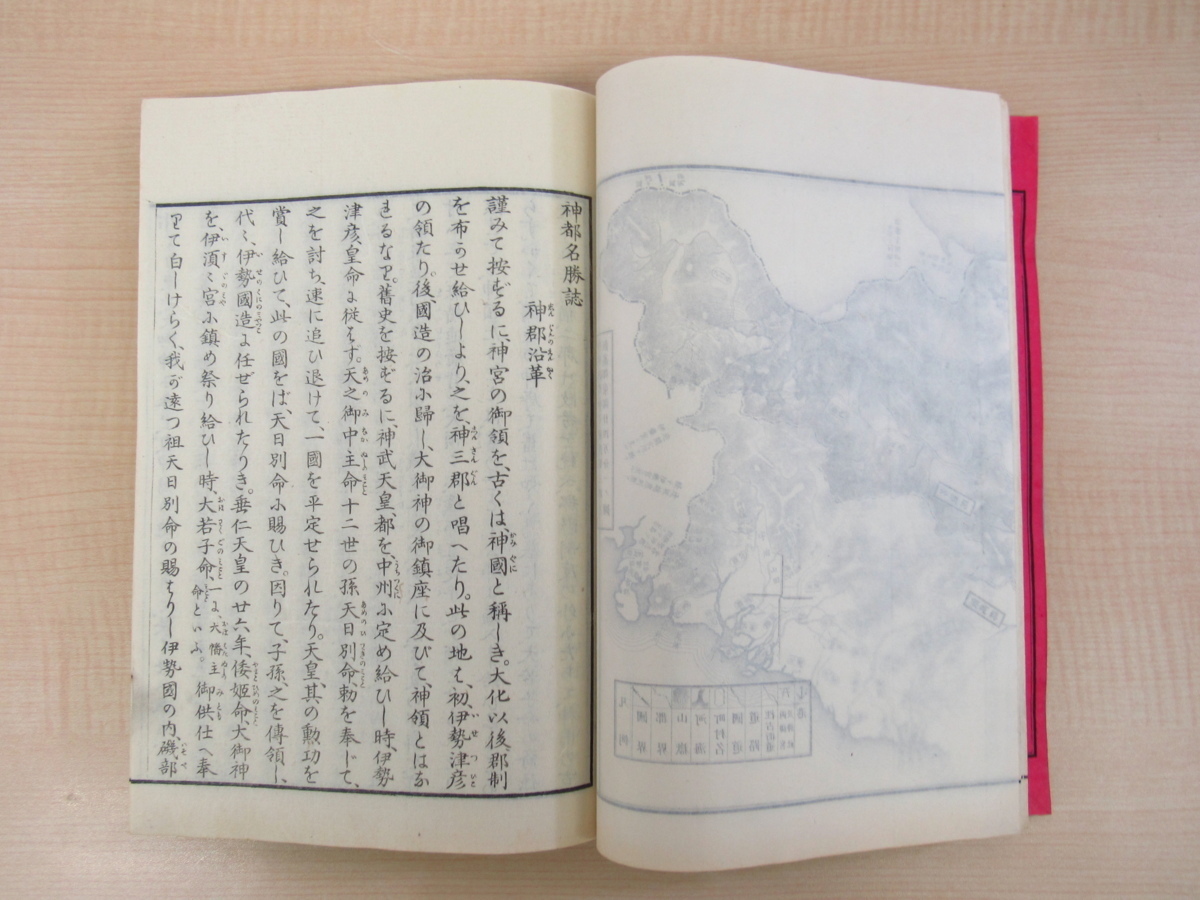 神都名勝誌
神郡沿革
謹みて按ずるに、神宮の御領を、古くは、神國と稱しき。大化以後、郡制
を布かせ給ひしより、之を、神三郡と唱へたり。此の地は、初、伊勢津彦
の領たり。後、國造の治に歸し、大御神の御鎮座に及びて、神領とはな
れるなり。舊史を按ずるに、神武天皇、都を、中州に定め給ひし時、伊勢
津彦、皇命に從はず。天之御中主命十二世の孫天日別命、勅を奉じて、
之を討ち、速に追ひ退けて、一國を平定せられたり。天皇、其の勲功を
賞し給ひて、此の國をば、天日別命に賜ひき。因りて、子孫、之を傳領し、
代々、伊勢國造に任ぜられたりき。垂仁天皇の廿六年、倭姫命、大御神
を、伊須々宮に鎮め祭り給ひし時、大若子命、一に、大幡主命といふ。御供仕へ奉
りて白しけらく、我が遠つ祖天日別命の賜はりし伊勢國の内、磯部